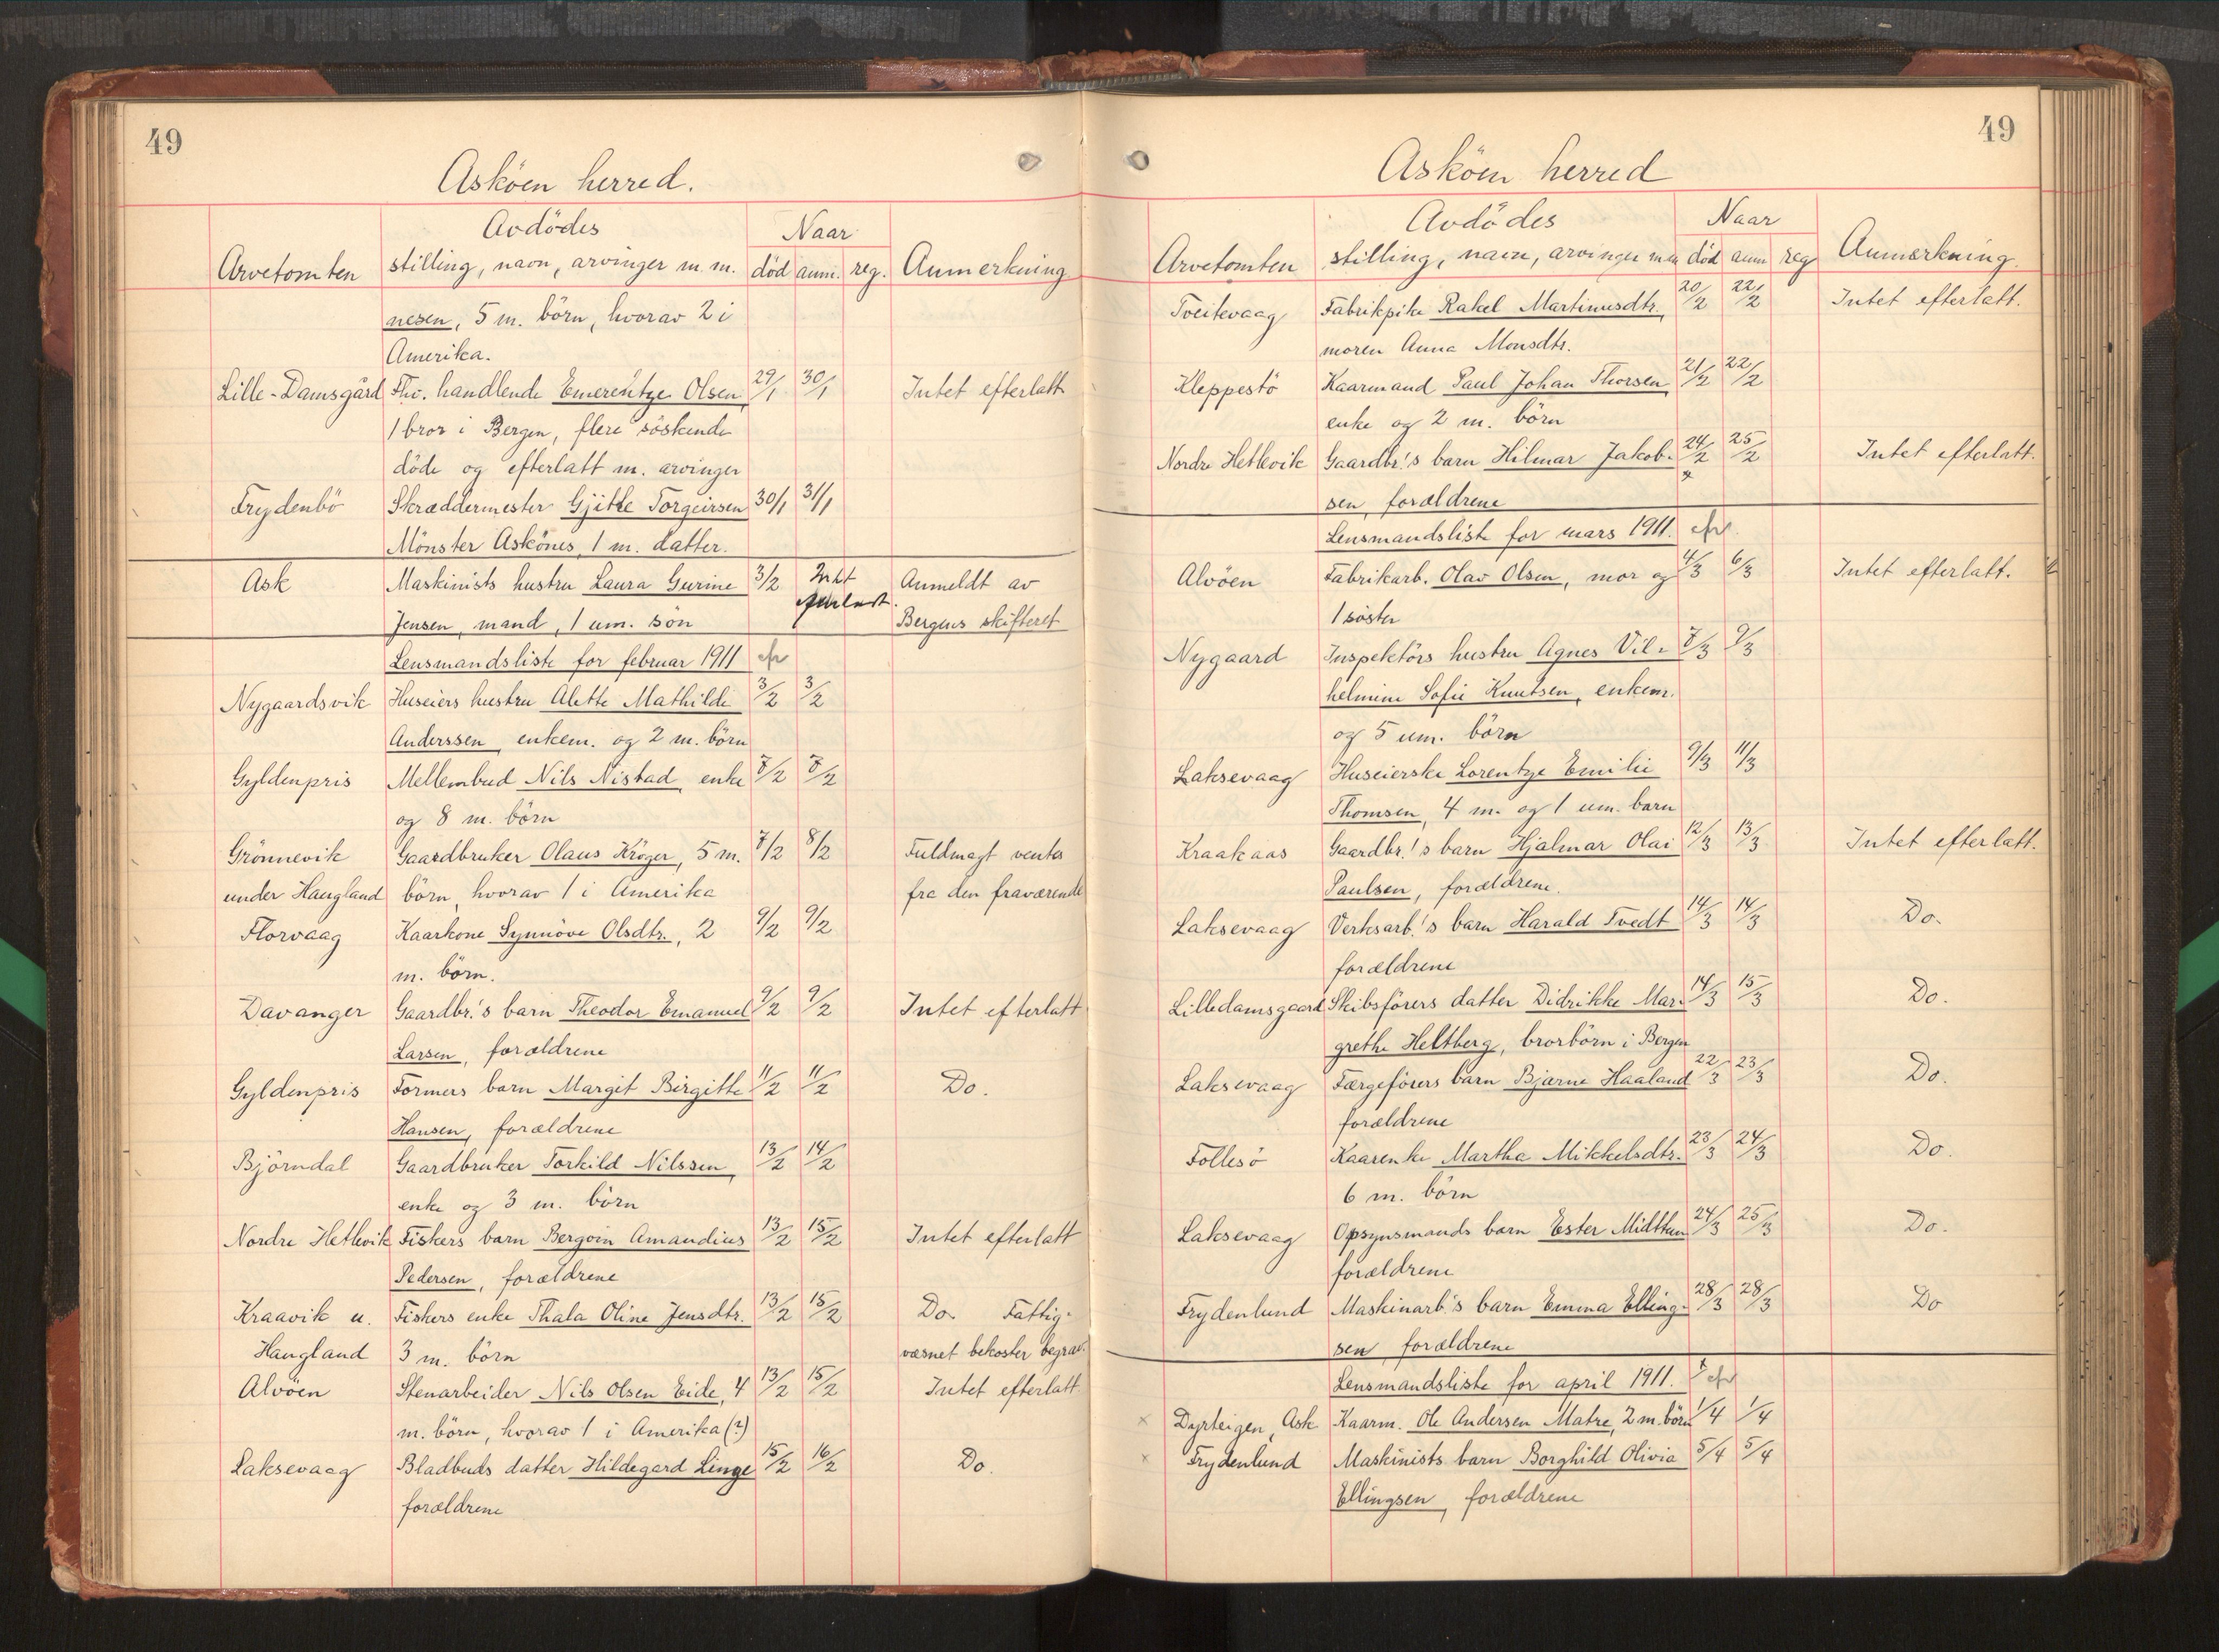 49
Asköen herred.
Arvetomten
Avdödes
stilling, navn, arvinger m. m.
Naar
död anm. reg.
Anmerkning
nesen, 5 m. börn, hvorav 2 i
Amerika.
Lille-Damsgård Fhv. handlende Emerentze Olsen, 29/1 30/1 Intet efterlatt
1 bror i Bergen, flere söskende
döde og efterlatt m. arvinger
Frydenbö Skræddermester Gjitle Torgeirsen 30/1 31/1
Mönster Askönes, 1 m. datter.
Ask Maskinists hustru Laura Gurine 3/2 Intet Anmeldt av
Jensen, mand, 1 um. sön efterlat. Bergens skifteret
Lensmandsliste for februar 1911
Nygaardsvik Huseiers hustru Alette Mathilde 3/2 3/2
Anderssen, enkem. og 2 m. börn
Gyldenpris Mellembud Nils Nistad, enke 7/2 8/2
og 8 m. börn
Grönnevik Gaardbruker Olaus Kröger, 5 m. 7/2 8/2 Fuldmagt ventes
under Haugland börn, hvorav 1 i Amerika fra den fraværende
Florvaag Kaarkone Synnöve Olsdtr., 2 9/2 9/2
m. börn.
Davanger Gaardbr.'s barn Theodor Emanuel 9/2 9/2 Intet efterlatt
Larsen, forældrene
Gyldenpris Formers barn Margit Birgitte 11/2 11/2 Do.
Hansen, forældrene
Björndal Gaardbruker Torkild Nilssen, 13/2 14/2
enke og 3 m. börn
Nordre Hetlevik Fiskers barn Bergvin Amandius 13/2 15/2 Intet efterlatt
Pedersen, forældrene
Kraavik u. Fiskers enke Thala Oline Jensdtr. 13/2 15/2 Do. Fattig-
Haugland 3 m. börn væsnet bekoster begrav.
Alvöen Stenarbeider Nils Olsen Eide, 4 13/2 15/2 Intet efterlatt.
m. börn, hvorav 1 i Amerika (?)
Laksevaag Bladbuds datter Hildegard Linge 15/2 16/2 Do.
forældrene
49
Asköen herred
Arvetomten
Avdödes
stilling, navn, arvinger m.m.
Naar
död anm reg
Anmerkning.
Tveitevaag Fabrikpike Rakel Martinusdtr., 20/2 22/2 Intet efterlatt.
moren Anna Monsdtr.
Kleppestö Kaarmand Paul Johan Thorsen, 21/2 22/2
enke og 2 m. börn
Nordre Hetlevik Gaardbr.'s barn Hilmar Jakob- 24/2 25/2 Intet efterlatt.
sen, forældrene
Lensmandsliste for mars 1911.
Alvöen Fabrikarb. Olav Olsen, mor og 4/3 6/3 Intet efterlatt.
1 söster
Nygaard Inspektörs hustru Agnes Vil- 8/3 9/3
helmine Sofie Knutsen, enkem.
og 5 um. börn
Laksevaag Huseierske Lorentze Emilie 9/3 11/3
Thomsen, 4 m. og 1 um. barn
Kraakaas Gaardbr.'s barn Hjalmar Olai 12/3 13/3 Intet efterlatt.
Paulsen, forældrene.
Laksevaag Verksarb.'s barn Harald Tvedt 14/3 14/3 Do.
forældrene
Lilledamsgaard Skibsförers datter Didrikke Mar- 14/3 15/3 Do.
grethe Heltberg, brorbörn i Bergen
Laksevaag Færgeförers barn Bjarne Haaland 22/3 23/3 Do.
forældrene
Follesö Kaarenke Martha Mikkelsdtr. 23/3 24/3 Do.
6 m. börn
Laksevaag Opsynsmands barn Ester Midttun 24/3 25/3 Do.
forældrene
Frydenlund Maskinarb's barn Emma Elling- 28/3 28/3 Do
sen, forældrene
Lensmandsliste for april 1911.
x Dyrteigen, Ask Kaarm. Ole Andersen Matre, 2 m. börn 1/4 1/4
x Frydenlund Maskinists barn Borghild Olivia 5/4 5/4
Ellingsen, forældrene